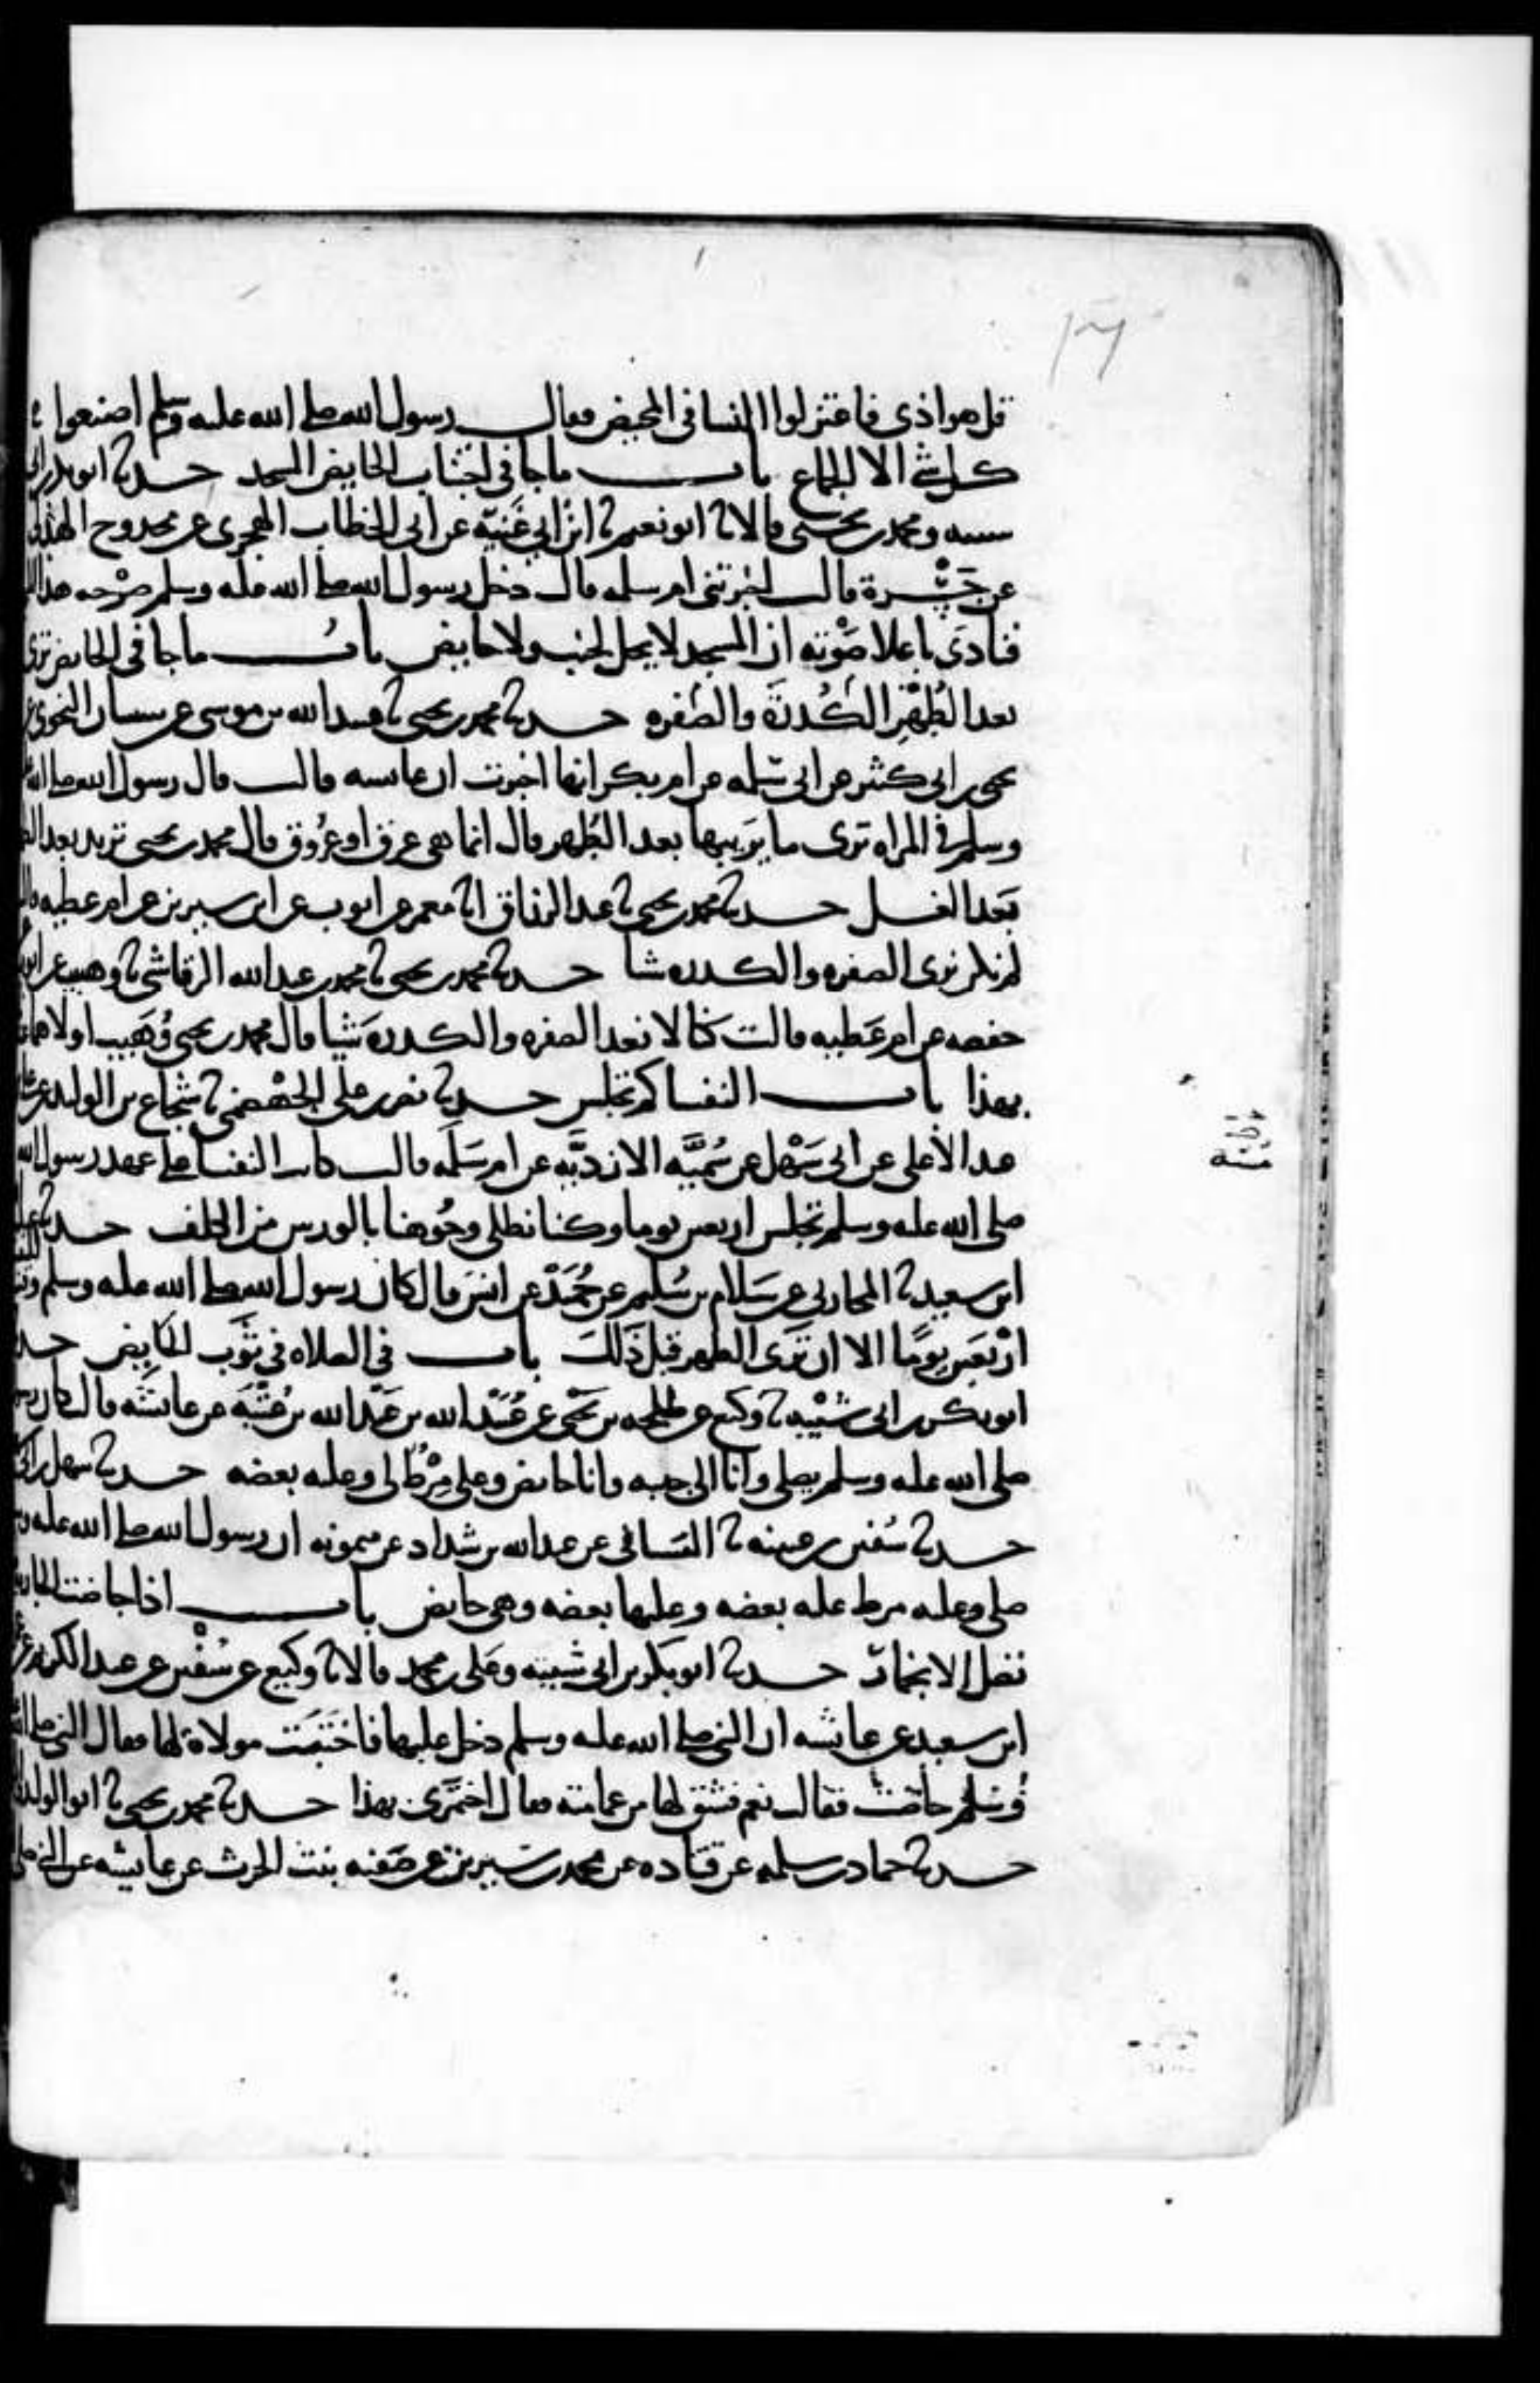 قل هو اذى فاعتزلوا النسا فى المحيض فقال رسول الله صلى الله عليه وسلم اصنعوا
كل شى الا الجماع باب ما جا فى اجتناب الحايض المسجد حدثنا ابو بكر بن ابى
شيبه ومحمد بن يحيى قالا نا ابو نعيم نا ابن ابي غَنِيّه عن ابى الخطاب الهجرى عن محدوح الهذلى
عن جَسْرة قالت اخبرتنى ام سلمه قالت دخل رسول الله صلى الله عليه وسلم صَرْحه هذا
فنادَى باعلا صَوْته ان المسجد لا يحل لجنب ولا حايض باب ما جا فى الحايض ترى
بعد الطُهْرِ الكُدْرَة والصُفره حدثنا محمد بن يحيى نا عبيد الله بن موسى عن شيبان النحوى
يحيى بن ابى كثير عن ابى سَلمه عن ام بكر انها اخبرت ان عايشه قالت قال رسول الله صلى الله
وسلم فى المراه ترى ما يَريبها بعد الطُهر قال انما هى عرق او عُروق قال محمد بن يحيى تريد بعد
بَعد الغسل حدثنا محمد بن يحيى نا عبد الرزاق انا معمر عن ايوب عن ابن سيرين عن ام عطيه
لم نكن نرى الصفره والكدره شيا حدثنا محمد بن يحيى نا محمد بن عبد الله الرقاشى نا وهيب عن ايوب
حفصه عن ام عَطيه قالت كنا لا نعد الصفره والكدرهَ شَيا قال محمد بن يحيى وُهَيب اولاهما
بهذا باب النفسا كم تجلس حدثنا نصر بن على الجَهْضَمى نا شجاع بن الوليد عن على
عبد الاعلى عن ابى سَهْل عن سُمَيَّه الازديَّه عن ام سَلَمه قالت كانت النفسا على عهد رسول الله
صلى الله عليه وسلم تجلس اربعين يوما وكنا نطلى وجُوهنا بالورس من الكلف حدثنا
ابن سعيد نا المحاربى عن سَلام بن سُليم عن حُمَيدْ عن انسَ قال كان رسول الله صلى الله عليه وسلم
ارْبَعين يومًا الا ان تَرَى الطهر قبل ذَلكَ باب فى الصلاه فى ثَوب الحَايِض
ابو بكر بن ابى شيْبه نا وكيع عن طلحه بن يَحْيى عن عُبَيْد الله بن عَبْد الله بن عُتْبَهَ عن عايشَه قالت كان
صلى الله عليه وسلم يصلى وانا الى جنبه وانا حايض وعلى مِرْطٌ لى وعليه بعضه حدثنا سهل بن ابى
حدثنا سُفين بن عيينه نا الشيبانى عن عبد الله بن شداد عن ميمونه ان رسول الله صلى الله عليه
صلى وعليه مرط عليه بعضه وعليها بعضه وهى حايض باب اذا حاضت الجاريه
تصل الا بخمار حدثنا ابو بكر بن ابى شيبه وعَلى بن محمد قالا نا وكيع عن سُفين عن عبد الكريم
ابن سعيد عن عايشه ان النبى صلى الله عليه وسلم دخل عليها فاختَبَت مولاة لها فقال النبى صلى
وسَلم حاضت فقالت نعم فشق لها من عمامته فقال اختمَرى بهذا حدثنا محمد بن يحيى نا ابو الوليد
حدثنا حماد بن سلمه عن قتَاده عن محمد بن سيرين عن صَفيه بنت الحرث عن عايشه عن النبى